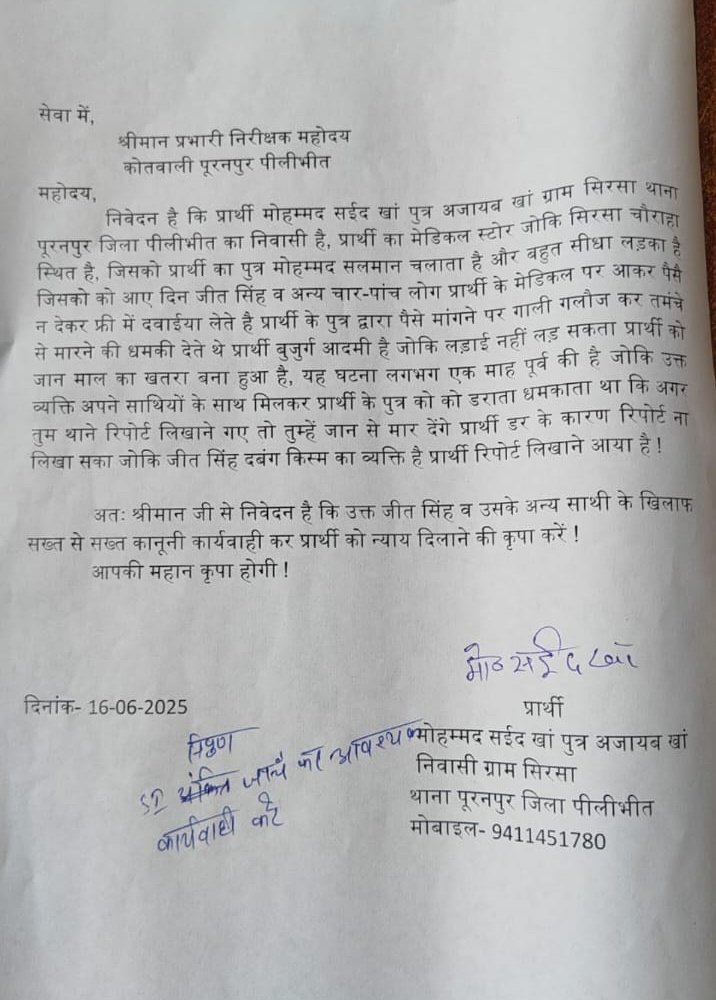 सेवा में,
श्रीमान प्रभारी निरीक्षक महोदय
कोतवाली पूरनपुर पीलीभीत
महोदय,
निवेदन है कि प्रार्थी मोहम्मद सईद खां पुत्र अजायब खां ग्राम सिरसा थाना
पूरनपुर जिला पीलीभीत का निवासी है, प्रार्थी का मेडिकल स्टोर जोकि सिरसा चौराहा
स्थित है, जिसको प्रार्थी का पुत्र मोहम्मद सलमान चलाता है और बहुत सीधा लड़का है
जिसको को आए दिन जीत सिंह व अन्य चार-पांच लोग प्रार्थी के मेडिकल पर आकर पैसै
न देकर फ्री में दवाईया लेते है प्रार्थी के पुत्र द्वारा पैसे मांगने पर गाली गलौज कर तमंचे
से मारने की धमकी देते थे प्रार्थी बुजुर्ग आदमी है जोकि लड़ाई नहीं लड़ सकता प्रार्थी को
जान माल का खतरा बना हुआ है, यह घटना लगभग एक माह पूर्व की है जोकि उक्त
व्यक्ति अपने साथियों के साथ मिलकर प्रार्थी के पुत्र को को डराता धमकाता था कि अगर
तुम थाने रिपोर्ट लिखाने गए तो तुम्हें जान से मार देंगे प्रार्थी डर के कारण रिपोर्ट ना
लिखा सका जोकि जीत सिंह दबंग किस्म का व्यक्ति है प्रार्थी रिपोर्ट लिखाने आया है !
अतः श्रीमान जी से निवेदन है कि उक्त जीत सिंह व उसके अन्य साथी के खिलाफ
सख्त से सख्त कानूनी कार्यवाही कर प्रार्थी को न्याय दिलाने की कृपा करें !
आपकी महान कृपा होगी !
मो० सईद खां
दिनांक- 16-06-2025
प्रार्थी
मोहम्मद सईद खां पुत्र अजायब खां
निवासी ग्राम सिरसा
थाना पूरनपुर जिला पीलीभीत
मोबाइल- 9411451780
SI जांच कर आवश्यक
कार्यवाही करें